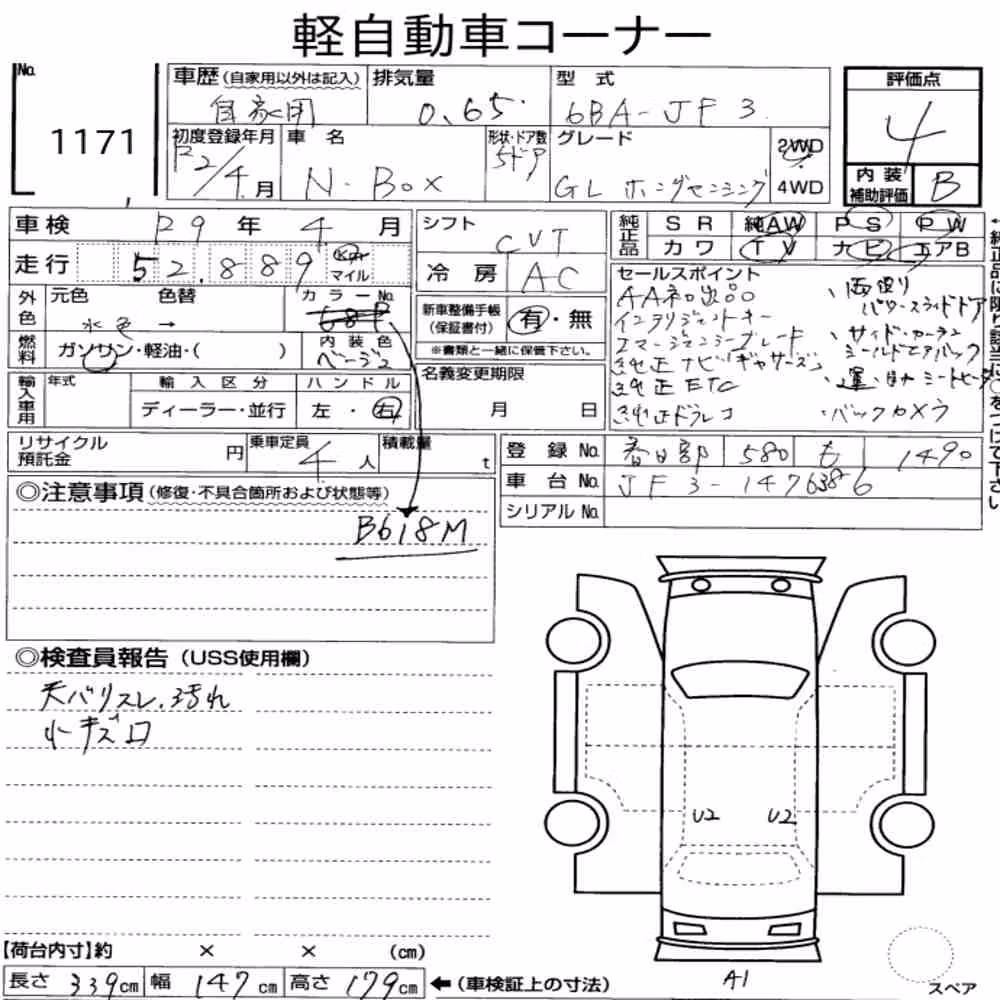 軽自動車コーナー
No. 1171
車歴 (自家用以外は記入) 自家用
排気量 0.65
型式 6BA-JF3
評価点 4
初度登録年月 R2/4月
車名 N-BOX
形状・ドア数 5ドア
グレード GL ホンダセンシング
2WD
4WD
内装補助評価 B
車検 R9年 4月
走行 52.889 Km マイル
シフト CVT
冷房 AC
純正品 SR 純AW PS PW
カワ TV ナビ エアB
外色 元色 色替 カラーNo.
水色 →
燃料 ガソリン・軽油・( )
内装色 ベージュ
新車整備手帳(保証書付) 有・無
※書類と一緒に保管下さい。
名義変更期限
月 日
セールスポイント
AA初出品
インテリジェントキー
純正ナビ ギャザーズ
純正ETC
純正ドラレコ
両側
パワースライドドア
サイド・カーテン
シールドエアバック
シートヒーター
・バックカメラ
←純正品に限り該当に○をつけて下さい
輸入車用 年式 輸入区分 ハンドル
ディーラー・並行 左・右
リサイクル預託金 円
乗車定員 4人
積載量 t
登録No. 春日部 580 も 1490
車台No. JF3-1476386
シリアルNo.
◎注意事項 (修復・不具合箇所および状態等)
B618M
◎検査員報告 (USS使用欄)
天バリスレ、汚れ
小キズ口
U2 U2
A1
スペア
【荷台内寸】約 × × (cm)
長さ 339cm 幅 147cm 高さ 179cm ←(車検証上の寸法)